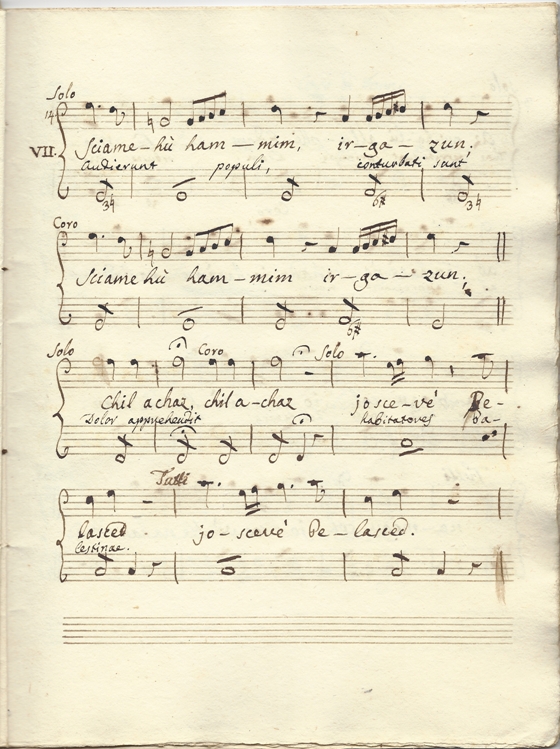 Solo
14
VII. Sciame-hù ham-mim, ir-ga-zun.
Audierunt populi, conturbati sunt
34 6# 34
Coro
Sciamehù ham-mim ir-ga-zun.
6#
Solo Coro Solo
Chil achaz, chil a-chaz josce-vé Pe-
Dolor apprehendit habitatores Pa-
Tutti
lasced jo-scevé Pe-lasced.
lestinae.